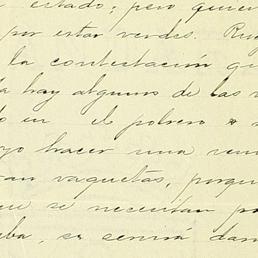 estado; pero quiere
por estar verdes.
la contestación qu
hay algunos de las
en el potrero
hacer una ven
vaquetas, porqu
se necesitan pa
se servirá dar